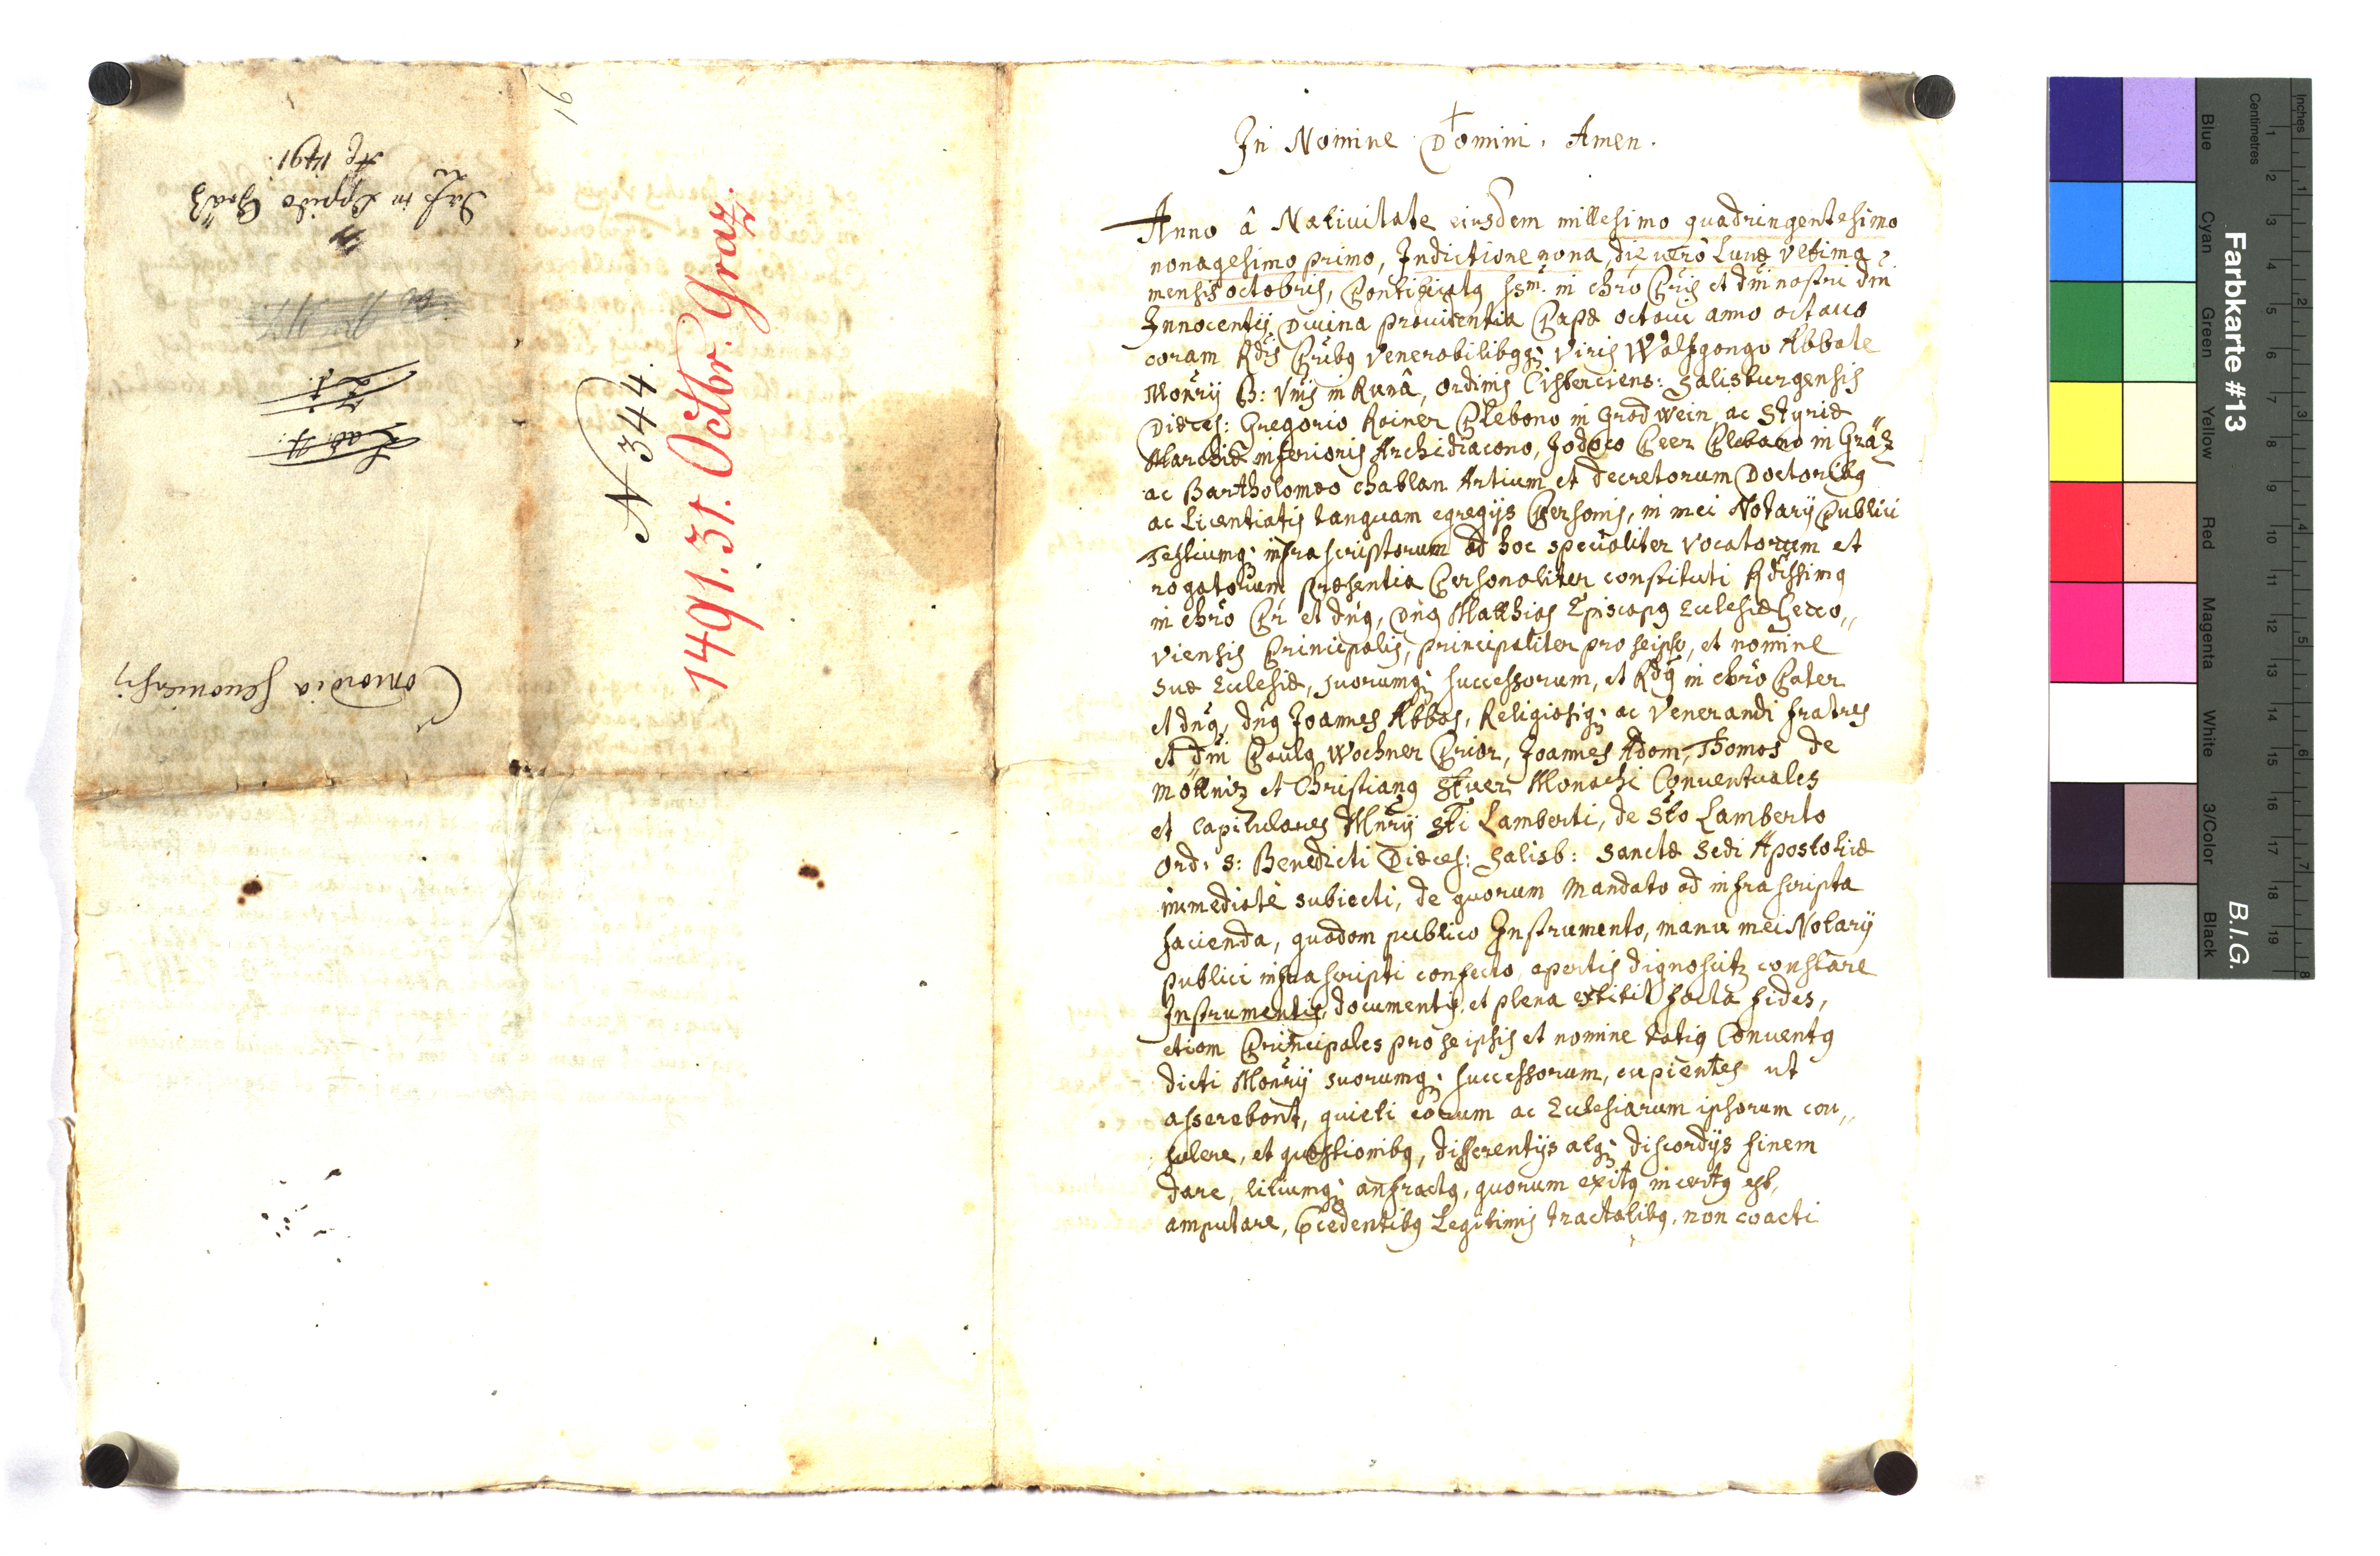 In Nomine Domini. Amen.
Anno â Nativitate eiusdem millesimo quadringentesimo
nonagesimo primo, Indictione nona, die uerò Lunæ Vltima
mensis octobris, Pontificatq ssm̃i in chrõ Pris et dñi nostri dñi
Innocentij Diuina prouidentia Papæ octaui anno octauo
coram Rdis Pribq Venerabilibqq; Viris Wolfgango Abbate
Monrij B: Vnis in Runâ, ordinis Cisterciens: Salisburgensis
Diæces: Gregorio Rainer Plebano in Gradwein ac Styriæ
Marchiæ inferioris Archidiacono, Jodoco Peer Plebano in Gräz
ac Bartholomæo Chablan Artium et Decretorum Doctoribq
ac Licentiatis tanquam egregijs Personis, in mei Notarij Publici
Testiumq; infrascriptorum ad hoc specialiter vocatorum et
rogatorum præsentia Personaliter constituti Rdissimq
in chrõ Pr et dñq, Dñq Matthias Episcopq Ecclesiæ Secco„
viensis Principalis, principaliter pro seipso, et nomine
suæ Ecclesiæ, suorumq; successorum, et Rdq in chrõ Pater
et dñq, dñq Joannes Abbas, Religiosiq; ac Venerandi fratres
et dñi Paulq Wochner Prior, Joannes Adam, Thomas de
Möttniz et Christianq Stuer Monachi Conuentuales
et Capitulares Mnrij Sti Lamberti, de Sto Lamberto
Ord: S: Benedicti Diæces: Salisb: Sanctæ Sedi Apostolicæ
immediatè subiecti, de quorum Mandato ad infra scripta
facienda, quodam publico Instrumento, manu mei Notarij
publici infrascripti confecto apertis dignoscitz constare
Instrumentis, documentis, et plena extitit facta fides,
etiam Principales pro se ipsis et nomine totiq Conuentq
dicti Monrij suorumq; successorum, cupientes ut
asserebant, quieti eorum ac Ecclesiarum ipsorum con„
sulere, et quæstionibq, differentijs atq; discordijs finem
dare, litiumq; anfractq, quorum exitq incertq est,
amputare, Pcedentibq Legitimis tractatibq, non coacti
N 344.
1491. 31. Octbr. Graz.
91
Concordia Secouiensis
Lad. 4.
Dass in Oppido Gräz
Aö 1491.
Farbkarte #13
B.I.G.
Inches
Centimetres
Blue
Cyan
Green
Yellow
Red
Magenta
White
3/Color
Black
1 2 3 4 5 6 7 8 9 10 11 12 13 14 15 16 17 18 19
1 2 3 4 5 6 7 8